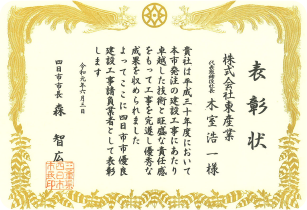 表彰状
株式会社東産業
代表取締役社長 木室浩一様
貴社は平成三十年度において
本市発注の建設工事にあたり
卓越した技術と旺盛な責任感
をもって工事を完遂し優秀な
成果を収められました
よってここに四日市市優良
建設工事請負業者として表彰
します
令和元年六月三日
四日市市長 森智広